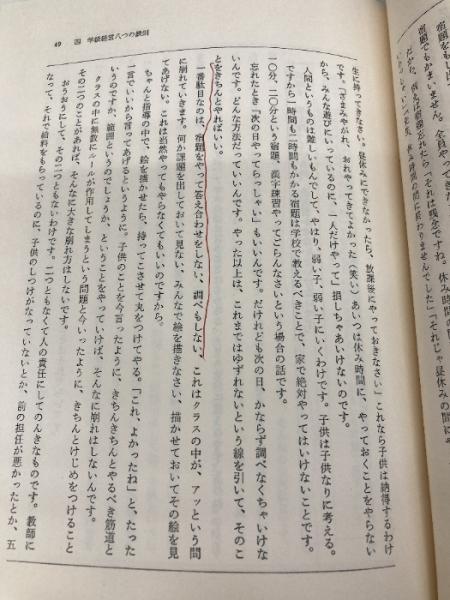 49　四　学級経営八つの鉄則
宿題をもっ
宿題でもかまいません。全員やってき
「それは残念ですね。休み時間に
「それじゃ昼休みの間に
生に持ってきなさい。昼休みにできなかったら、放課後にやっておきなさい」これなら子供は納得するわけ
です。「ざまみやがれ、おれやってきてよかった（笑い）あいつは休み時間に、やっておくことをやらない
から、みんな遊びにいっているのに、一人だけやって」損しちゃあいけないのです。
人間というものは難しいもんでして、やはり、弱い子、弱い子にいくわけです。子供は子供なりに考える。
ですから一時間も二時間もかかる宿題は学校で教えるべきことで、家で絶対やってはいけないことです。
一〇分、二〇分という宿題、漢字練習やってごらんなさいという場合の話です。
忘れたとき「次の日やってらっしゃい」もいいんです。だけれども次の日、かならず調べなくちゃいけな
いんです。どんな方法だっていいんです。やった以上は、これまではゆずれないという線を引いて、そのこ
とをきちんとやればいい。
一番駄目なのは、宿題をやって答え合わせをしない、調べもしない、これはクラスの中が、アッという間
に崩れていきます。何か課題を出しておいて見ない、みんなで絵を描きなさい、描かせておいてその絵を見
てあげない。これは当然やってもやらなくてもいいのですから。
ちゃんと指導の中で、絵を描かせたら、持ってこさせて丸をつけてやる。「これ、よかったね」と、たった
一言でいいから言ってあげるというように。子供のことを今言ったように、きちんきちんとやるべき筋道と
いうのですか、範囲というのでしょうか、ということをやっていけば、そんなに崩れはしないんです。
クラスの中に無数にルールが作用してしまうという問題と今いったように、きちんとけじめをつけること
その二つのことがあれば、そんなに大きな崩れ方はしないです。
おうおうにして、その二つともないわけです。二つともなくて人の責任にしてのんきなものです。教師に
なって、それで給料をもらっているのに、子供のしつけがなっていないとか、前の担任が悪かったとか、五